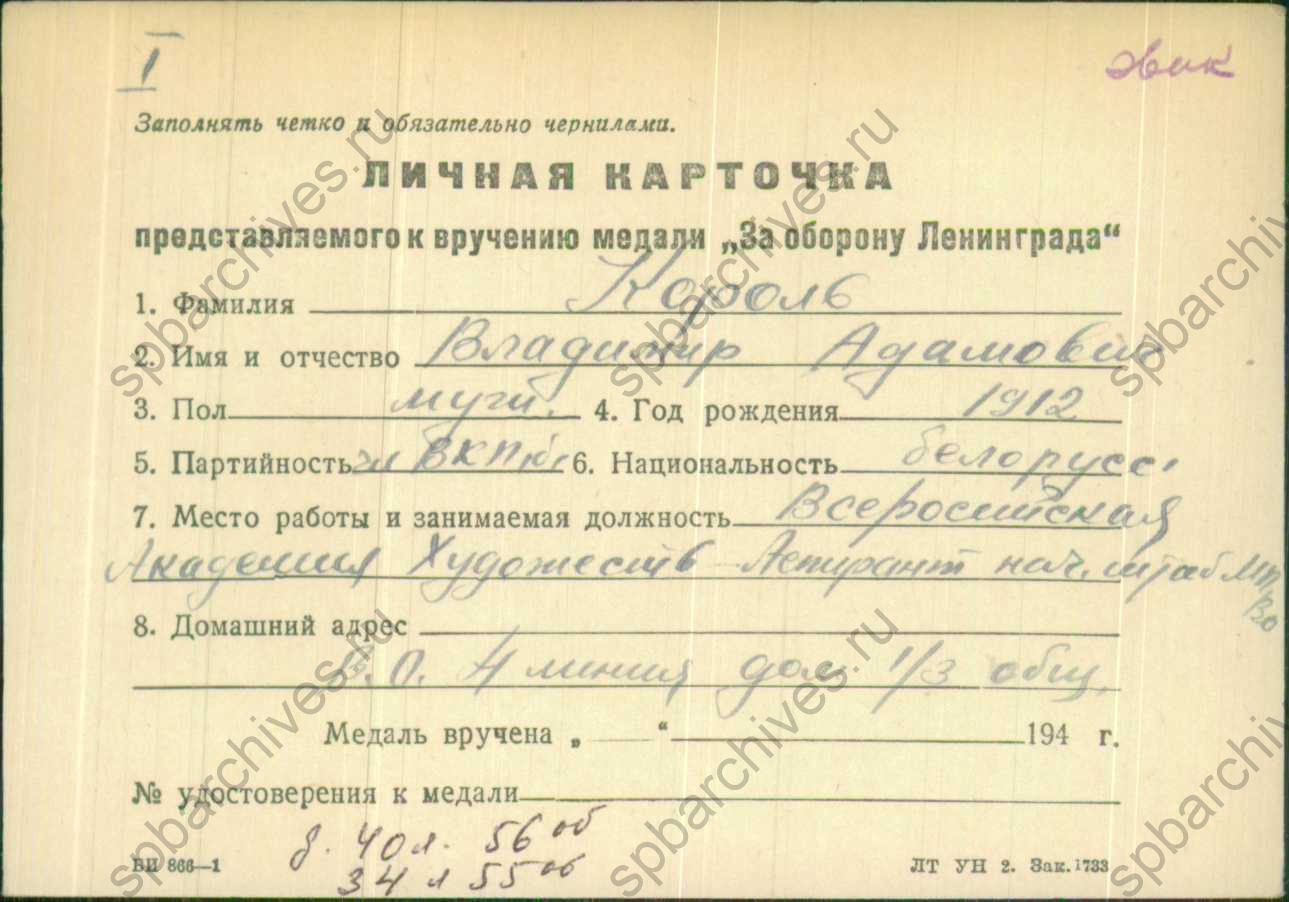 I
эвак
Заполнять четко и обязательно чернилами.
ЛИЧНАЯ КАРТОЧКА
представляемого к вручению медали „За оборону Ленинграда“
1. Фамилия Король
2. Имя и отчество Владимир Адамович
3. Пол мужч. 4. Год рождения 1912
5. Партийность чл ВКП(б) 6. Национальность белорусс.
7. Место работы и занимаемая должность Всеросийская
Академия Художеств Аспирант нач. штаб МПВО
8. Домашний адрес
В.О. 4 линия дом 1/3 общ.
Медаль вручена „ “ 194 г.
№ удостоверения к медали
д. 40 л. 56 об
34 л 55 об
БИ 866—1 ЛТ УН 2. Зак. 1733
spbarchives.ru